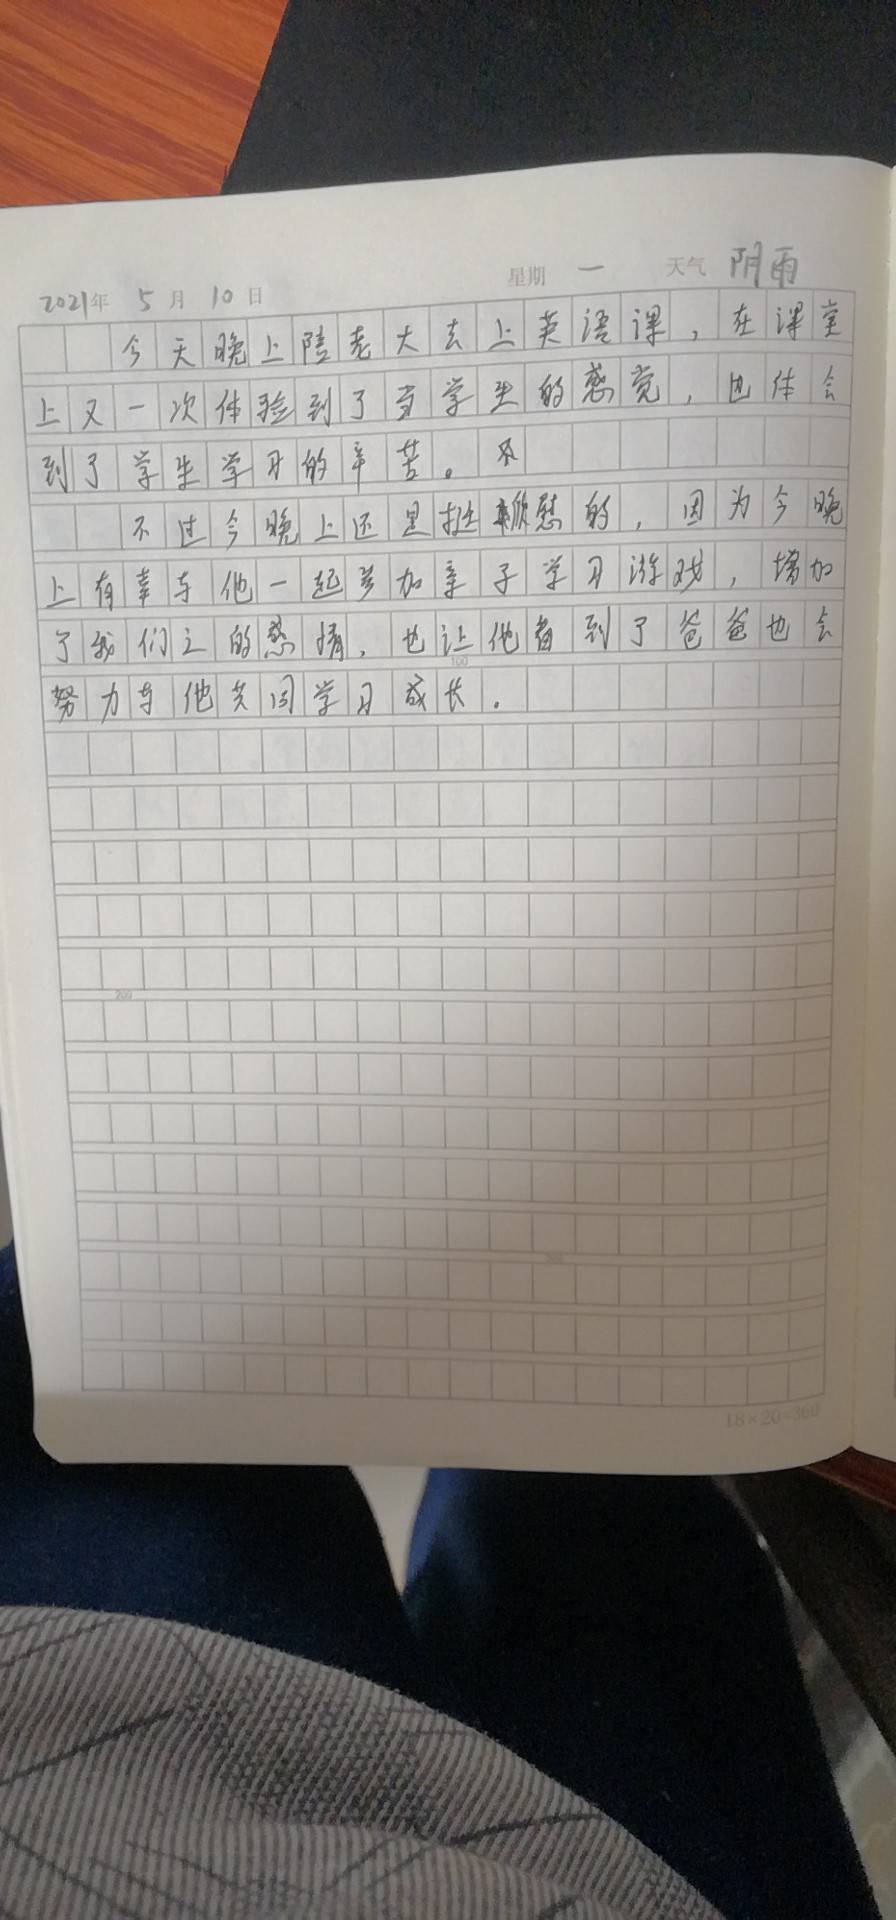 2021年 5月 10日 星期 一 天气 阴雨
今天晚上陪老大去上英语课，在课堂
上又一次体验到了当学生的感觉，也体会
到了学生学习的辛苦。不
不过今晚上还是挺欣慰的，因为今晚
上有幸与他一起参加亲子学习游戏，增加
了我们之的感情，也让他看到了爸爸也会
100
努力与他共同学习成长。
200
300
18×20=360